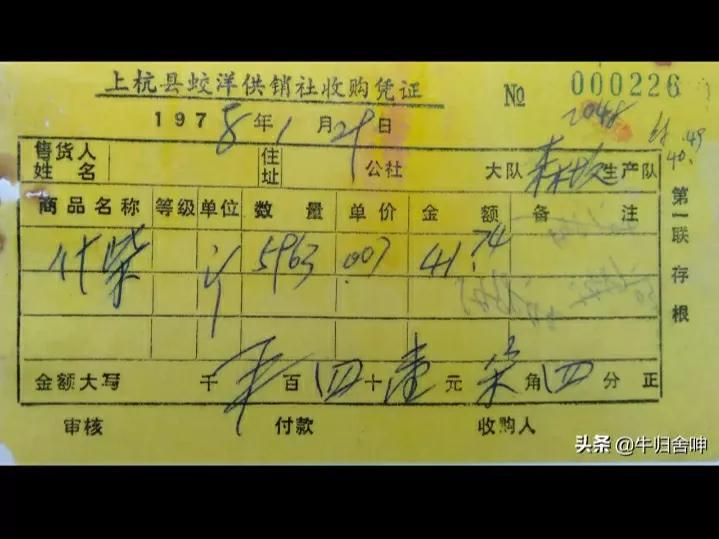 上杭县蛟洋供销社收购凭证 № 000226
1978年1月29日 2048
售货人姓名 住址 公社 大队 生产队 40.49
商品名称 等级 单位 数量 单价 金额 备注
什柴 斤 5963 .007 41.74
金额大写 千 百 四十壹元柒角四分正
审核 付款 收购人
第一联存根
头条 @牛归舍呻